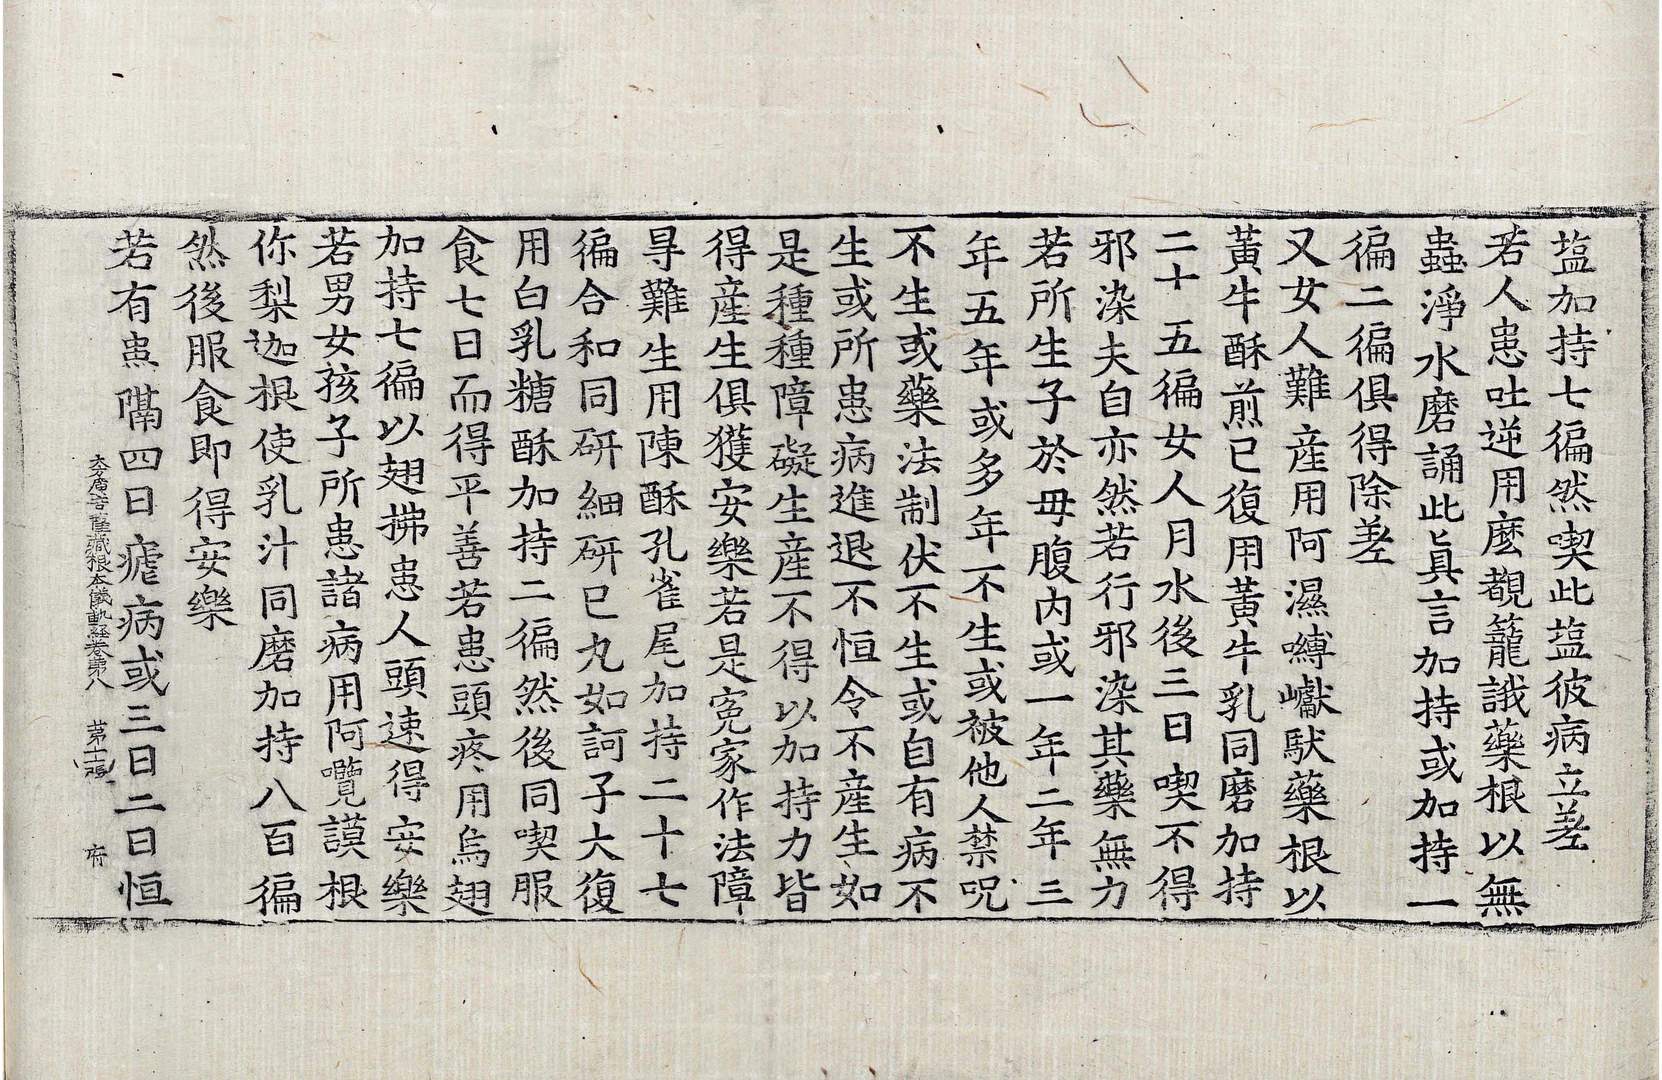 塩加持七徧然喫此塩彼病立差
若人患吐逆用麽覩籠誐藥根以無
蟲淨水磨誦此眞言加持或加持一
徧二徧俱得除差
又女人難産用阿濕嚩巘馱藥根以
黃牛酥煎已復用黃牛乳同磨加持
二十五徧女人月水後三日喫不得
邪染夫自亦然若行邪染其藥無力
若所生子於母腹內或一年二年三
年五年或多年不生或被他人禁呪
不生或藥法制伏不生或自有病不
生或所患病進退不恒令不産生如
是種種障礙生産不得以加持力皆
得産生俱獲安樂若是寃家作法障
㝵難生用陳酥孔雀尾加持二十七
徧合和同研細研已丸如訶子大復
用白乳糖酥加持二徧然後同喫服
食七日而得平善若患頭疼用烏翅
加持七徧以翅拂患人頭速得安樂
若男女孩子所患諸病用阿囕謨根
你梨迦根使乳汁同磨加持八百徧
然後服食即得安樂
若有患隔四日瘧病或三日二日恒
大方廣菩薩藏根本儀軌經卷第八 第十二張 府